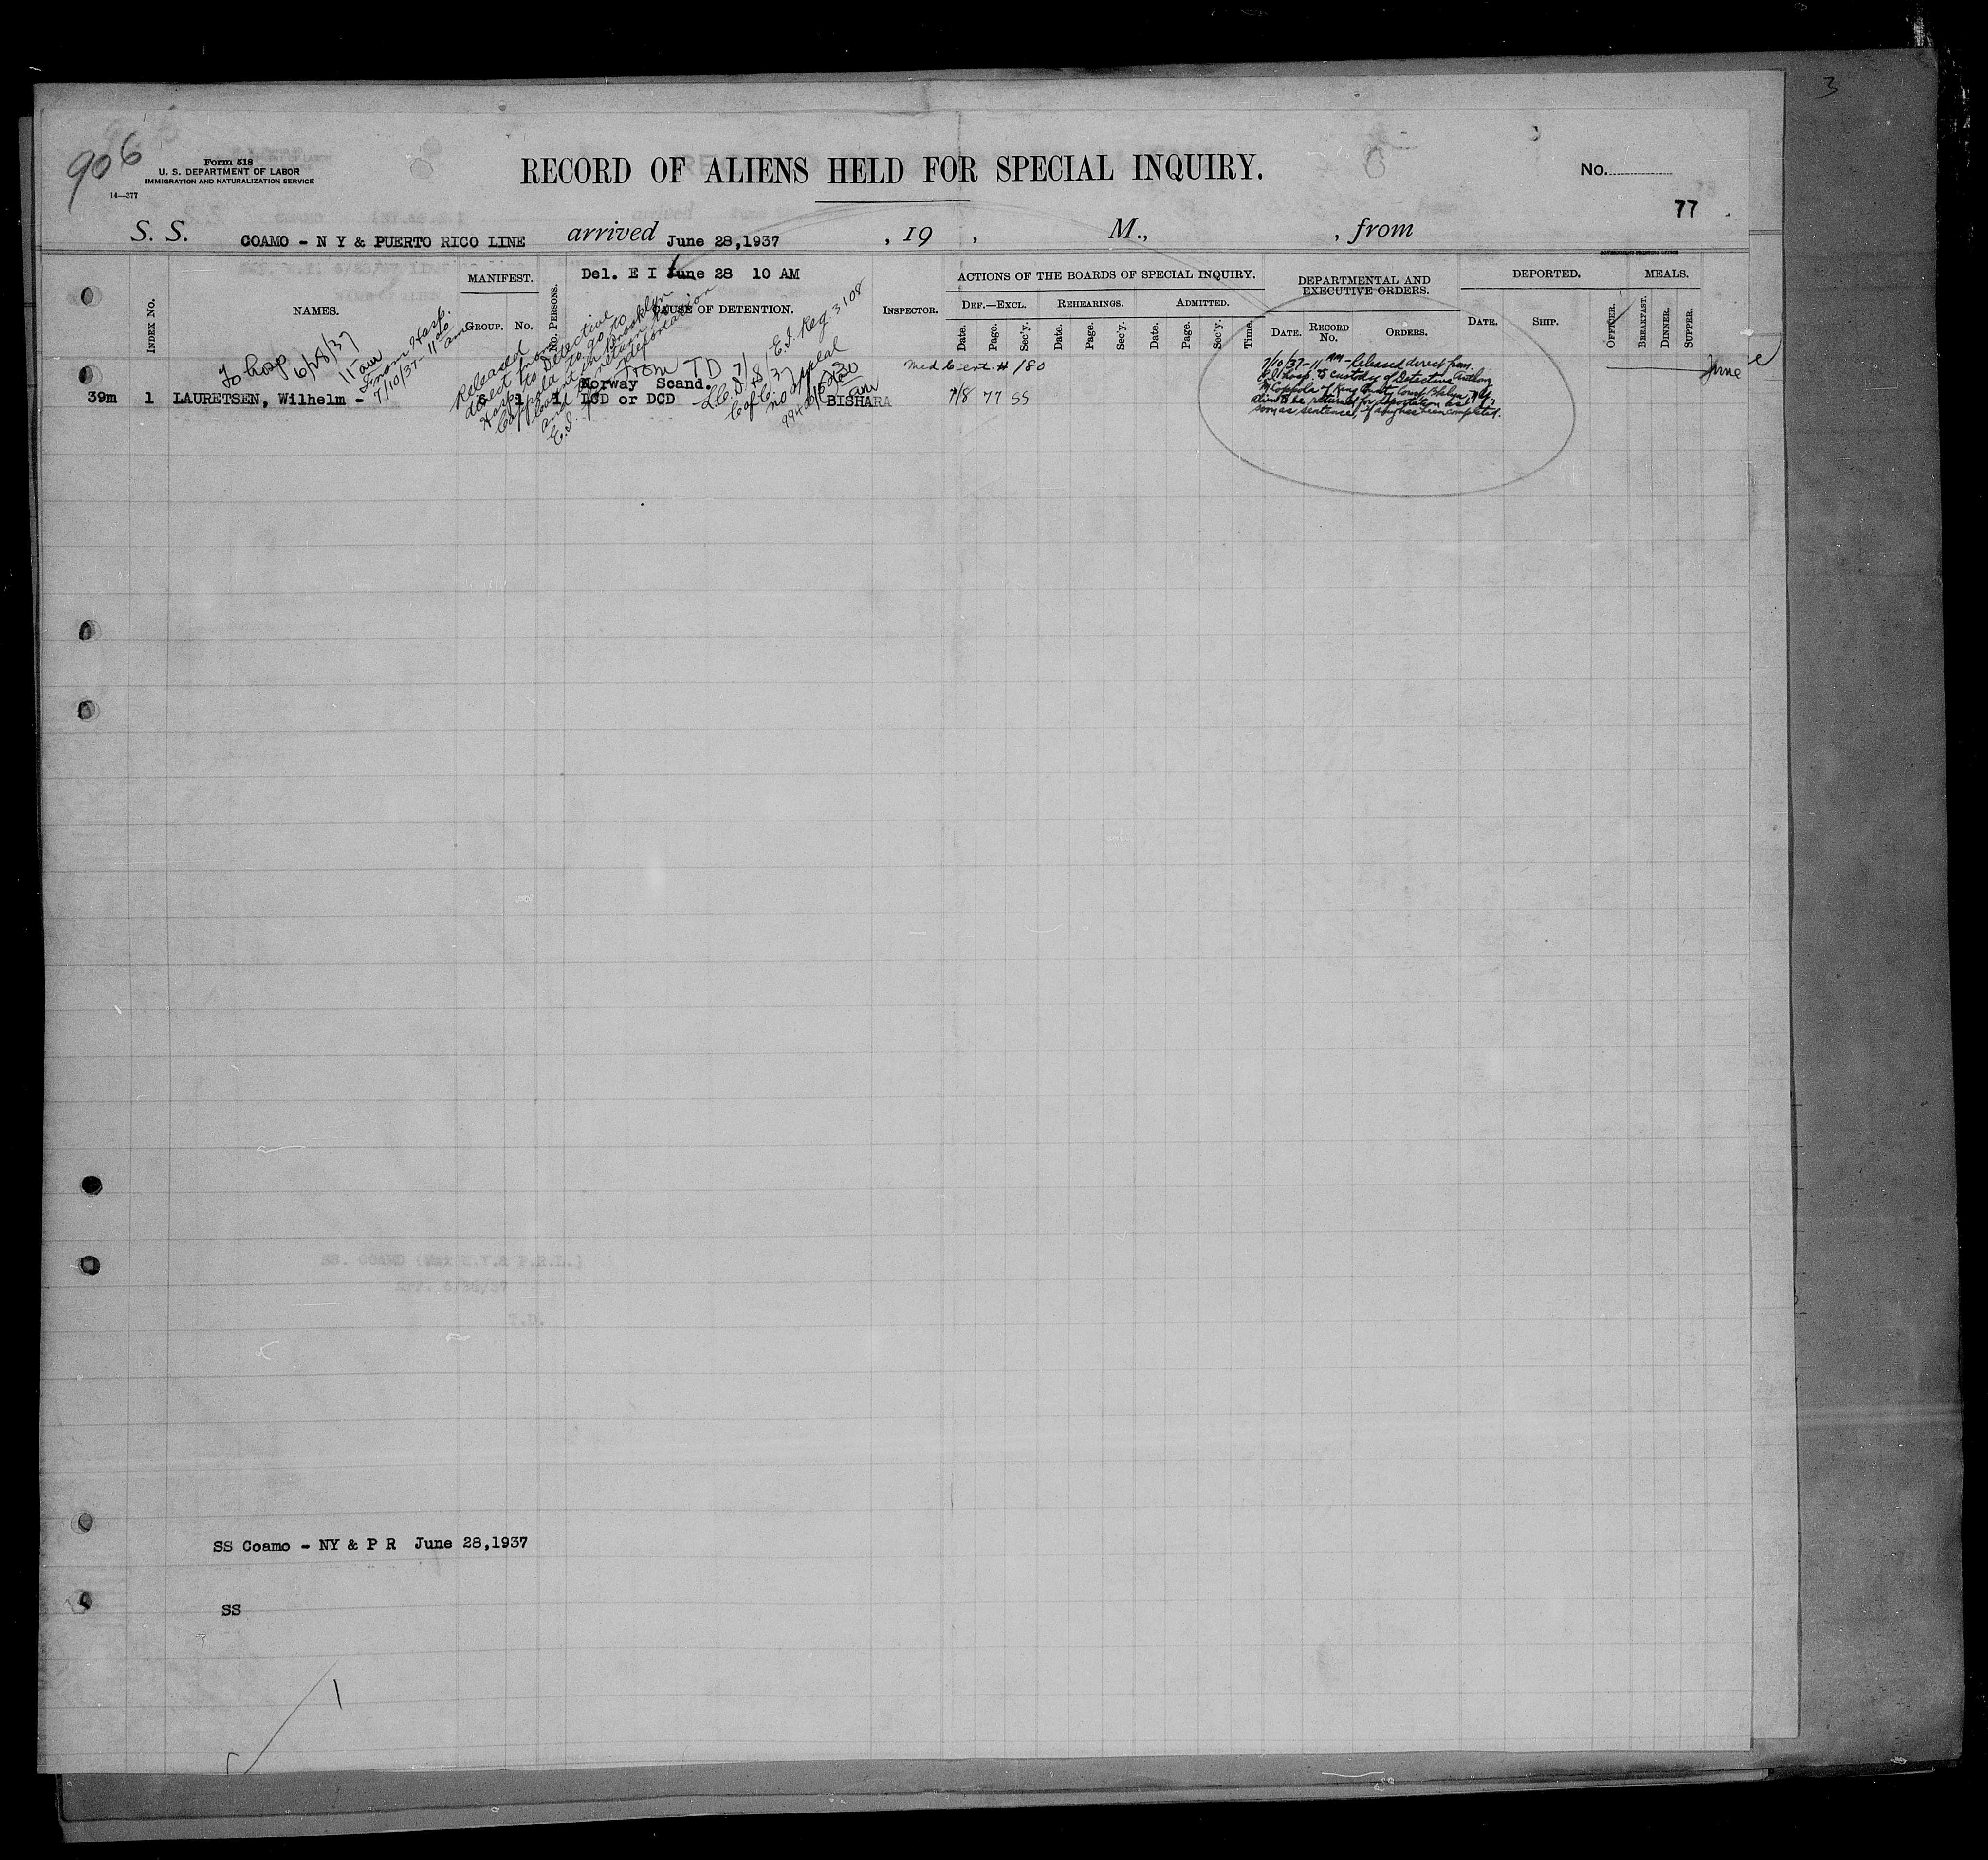 3
906
Form 518
U. S. DEPARTMENT OF LABOR
IMMIGRATION AND NATURALIZATION SERVICE
14—377
RECORD OF ALIENS HELD FOR SPECIAL INQUIRY.
No.
77
S. S. COAMO - N Y & PUERTO RICO LINE arrived June 28,1937 , 19 , M., , from
GOVERNMENT PRINTING OFFICE
INDEX No.
NAMES.
MANIFEST.
GROUP. No.
No. PERSONS.
Del. E I June 28 10 AM
CAUSE OF DETENTION.
INSPECTOR.
ACTIONS OF THE BOARDS OF SPECIAL INQUIRY.
DEF.—EXCL. REHEARINGS. ADMITTED.
Date. Page. Sec'y. Date. Page. Sec'y. Date. Page. Sec'y. Time.
DEPARTMENTAL AND
EXECUTIVE ORDERS.
DATE. RECORD No. ORDERS.
DEPORTED.
DATE. SHIP. OFFICER.
MEALS.
BREAKFAST. DINNER. SUPPER.
To hosp 6/28/37
11 am
From Hosp.
7/10/37 - 11 am
Released
direct from
Hosp. to Detective
Coppola to go to
Court in Brooklyn
and return to
E.I. for deportation
From TD 7/1
E.I. Reg. 3108
no appeal
Med Cert # 180
Norway Scand.
39m 1 LAURETSEN, Wilhelm - 6 1 1 LCD or DCD BISHARA 7/8 77 SS
7/10/37 - 11 AM - Released direct from
E.I. Hosp. to custody of Detective Anthony
M. Coppola of King County Court, Bklyn, N.Y.
alien to be returned for deportation as
soon as sentence, if any has been completed.
June
SS Coamo - NY & P R June 28,1937
SS
1